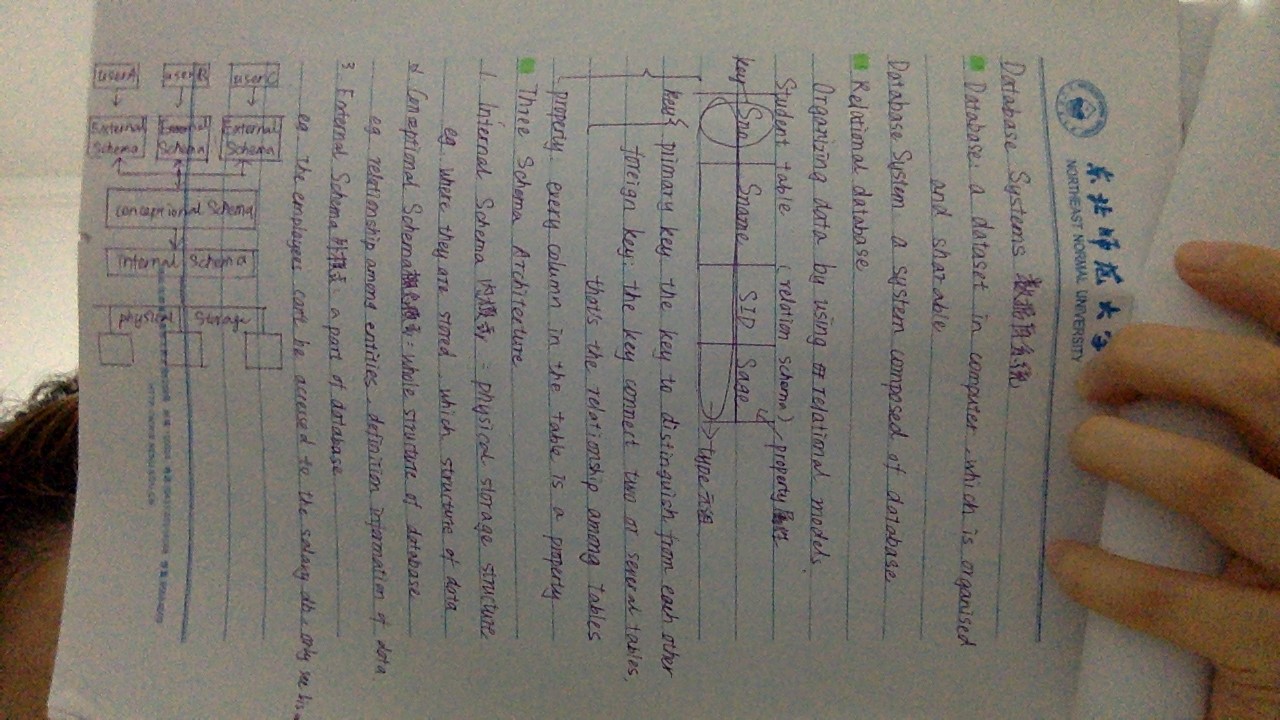 东北师范大学
NORTHEAST NORMAL UNIVERSITY
Database Systems 数据库系统
Database: a dataset in computer, which is organised
and sharable
Database System a system composed of database.
Relational database
Organizing data by using relational models.
Student table (relation schema) property 属性
key Sno Sname SID Sage
type
key { primary key the key to distinguish from each other
foreign key: the key connect two or several tables,
that's the relationship among tables
property: every column in the table is a property
Three Schema Architecture
1. Internal Schema 内模式 = physical storage structure
eg where they are stored which structure of data
2 Conceptional Schema 概念模式: whole structure of database
eg relationship among entities, definition information of data
3. External Schema 外模式: a part of database
eg The employees can't be accessed to the salary db, only see his
userA userB userC
External Schema External Schema External Schema
Conceptional Schema
Internal Schema
physical Storage